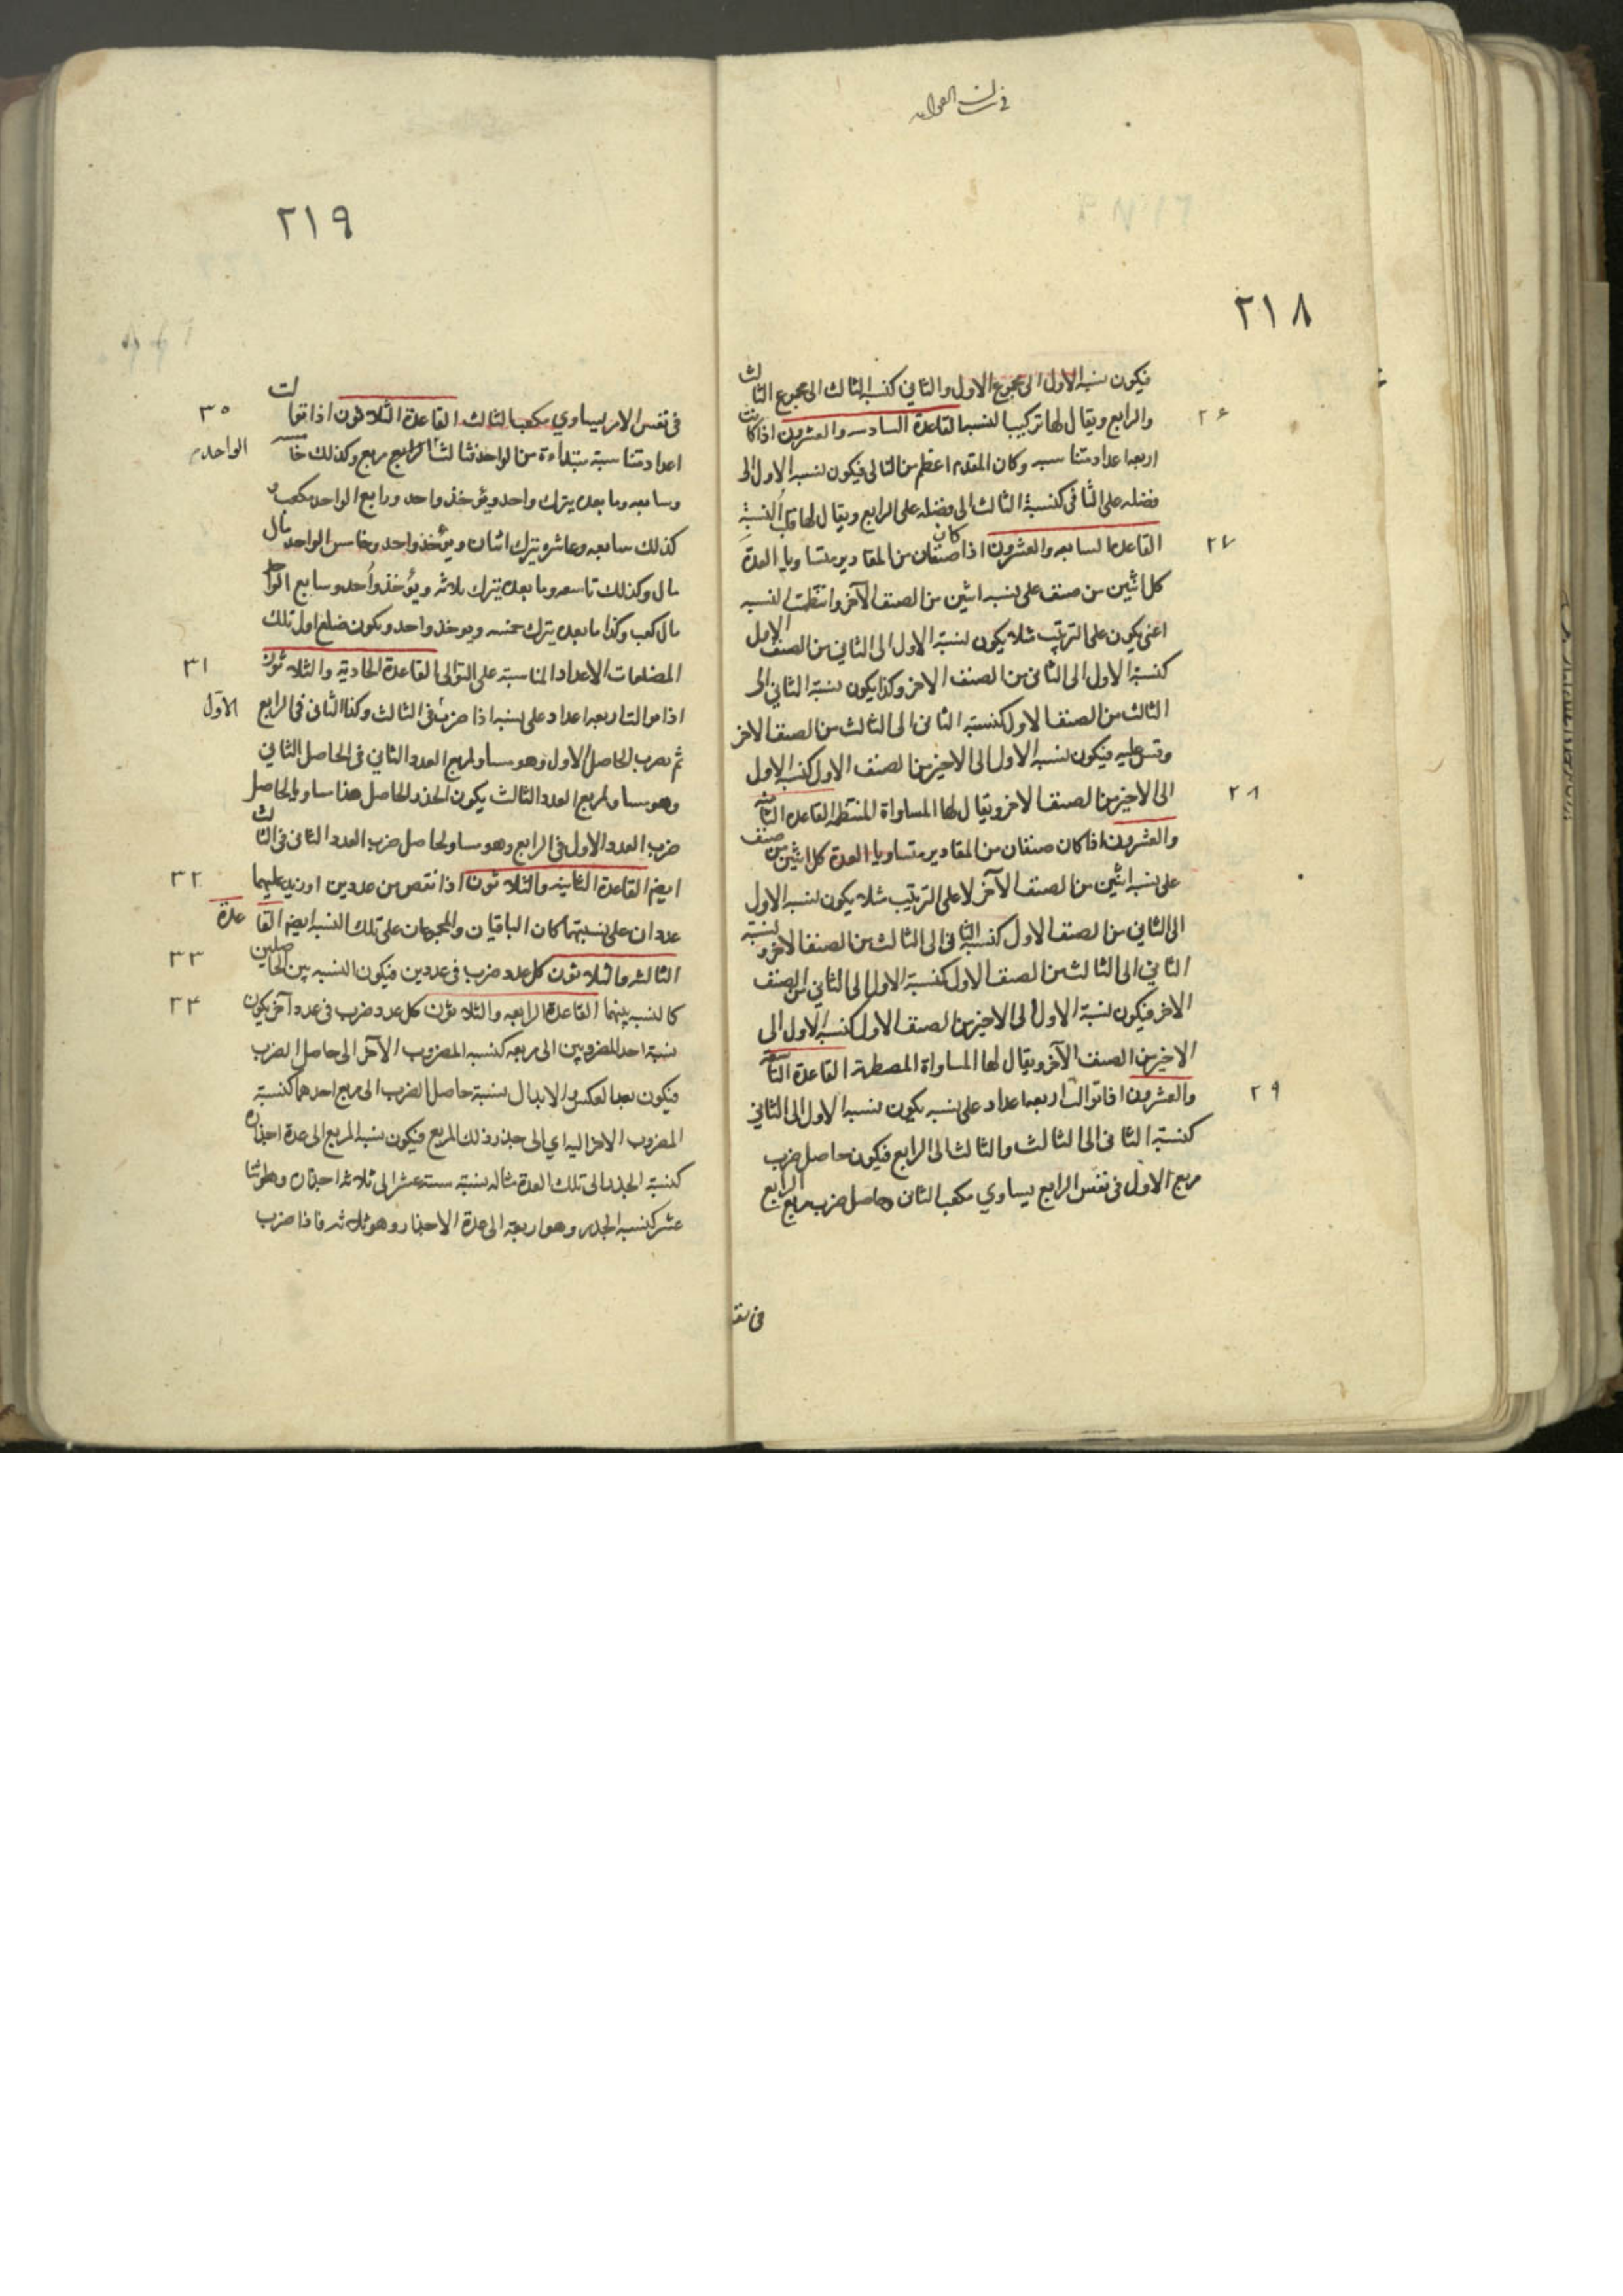 ٢١٨
فيكون نسبة الاول الى مجموع الاول والثاني كنسبة الثالث الى مجموع الثالث
٢٦
والرابع ويقال لها تركيب النسبة القاعدة السادسه والعشرون اذا كانت
اربعه اعداد متناسبه وكان المقدم اعظم من التالى فيكون نسبه الاول الى
فضله على الثانى كنسبة الثالث الى فضله على الرابع ويقال لها قلب النسبة
٢٧
القاعده السابعه والعشرون اذا كان صنفان من المقادير متساويا العدة
كل اثنين من صنف على نسبه اثنين من الصنف الآخر وانتظمت النسبه
اعنى يكون على الترتيب مثلا يكون نسبة الاول الى الثاني من الصنف الاول
كنسبة الاول الى الثانى من الصنف الاخر وكذا يكون نسبة الثاني الى
الثالث من الصنف الاول كنسبة الثانى الى الثالث من الصنف الاخر
وقس عليه فيكون نسبه الاول الى الاخير من الصنف الاول كنسبه الاول
٢٨
الى الاخير من الصنف الاخر ويقال لها المساواة المنتظمه القاعده الثامنه
والعشرون اذا كان صنفان من المقادير متساويا العدة كل اثنين من صنف
على نسبه اثنين من الصنف الآخر لا على الترتيب مثلا يكون نسبه الاول
الى الثاني من الصنف الاول كنسبة الثانى الى الثالث من الصنف الاخر ونسبة
الثاني الى الثالث من الصنف الاول كنسبة الاول الى الثاني من الصنف
الاخر فيكون نسبة الاول الى الاخير من الصنف الاول كنسبه الاول الى
الاخير من الصنف الآخر ويقال لها المساواة المضطربة القاعدة التاسعه
٢٩
والعشرون اذا توالت اربعه اعداد على نسبه يكون نسبه الاول الى الثاني
كنسبة الثانى الى الثالث والثالث الى الرابع فيكون حاصل ضرب
مربع الاول فى نفس الرابع يساوي مكعب الثانى وحاصل ضرب مربع الرابع
فى نفس
٢١٩
٣٠
فى نفس الاول يساوي مكعب الثالث القاعدة الثلاثون اذا توالت
اعداد متناسبة مبتداءة من الواحد فثالث الواحد مربع وكذلك خامسه
وسابعه وما بعده يترك واحد ويؤخذ واحد ورابع الواحد مكعب و
كذلك سابعه وعاشره يترك اثنان ويؤخذ واحد وخامس الواحد مال
مال وكذلك تاسعه وما بعده يترك ثلاثه ويؤخذ واحد وسابع الواحد
مال كعب وكذا ما بعده يترك خمسه ويوخذ واحد ويكون ضلع اول تلك
٣١
المضلعات الاعداد المتناسبة على التوالى القاعدة الحادية والثلاثون
اذا توالت اربعه اعداد على نسبه اذا ضرب الاول فى الثالث وكذا الثانى فى الرابع
ثم يضرب الحاصل الاول وهو مساو لمربع العدد الثاني فى الحاصل الثاني
وهو مساو لمربع العدد الثالث يكون الجذر الحاصل هذا مساويا لحاصل
ضرب العدد الاول فى الرابع وهو مساو لحاصل ضرب العدد الثانى فى الثالث
٣٢
ايضم القاعدة الثانية والثلاثون اذا نقص من عددين او زيد عليهما
عددان على نسبتهما كان الباقيان والمجموعان على تلك النسبه ايضم القاعدة
٣٣
الثالثه والثلاثون كل عدد ضرب فى عددين فيكون النسبه بين الحاصلين
٣٤
كالنسبه بينهما القاعدة الرابعه والثلاثون كل عدد ضرب فى عدد آخر يكون
نسبة احد المضروبين الى مربعه كنسبه المضروب الآخر الى حاصل الضرب
فيكون بعد العكس والابدال نسبة حاصل الضرب الى مربع احدهما كنسبة
المضروب الاخر اليه اي الى جذر ذلك المربع فيكون نسبه المربع الى عدة اجذاره
كنسبة الجذر الى تلك العدة مثاله نسبة ستة عشر الى ثلاثه اجذار وهو اثنا
عشر كنسبه الجذر وهو اربعة الى عدة الاجذار وهو ثلاثه فاذا ضرب